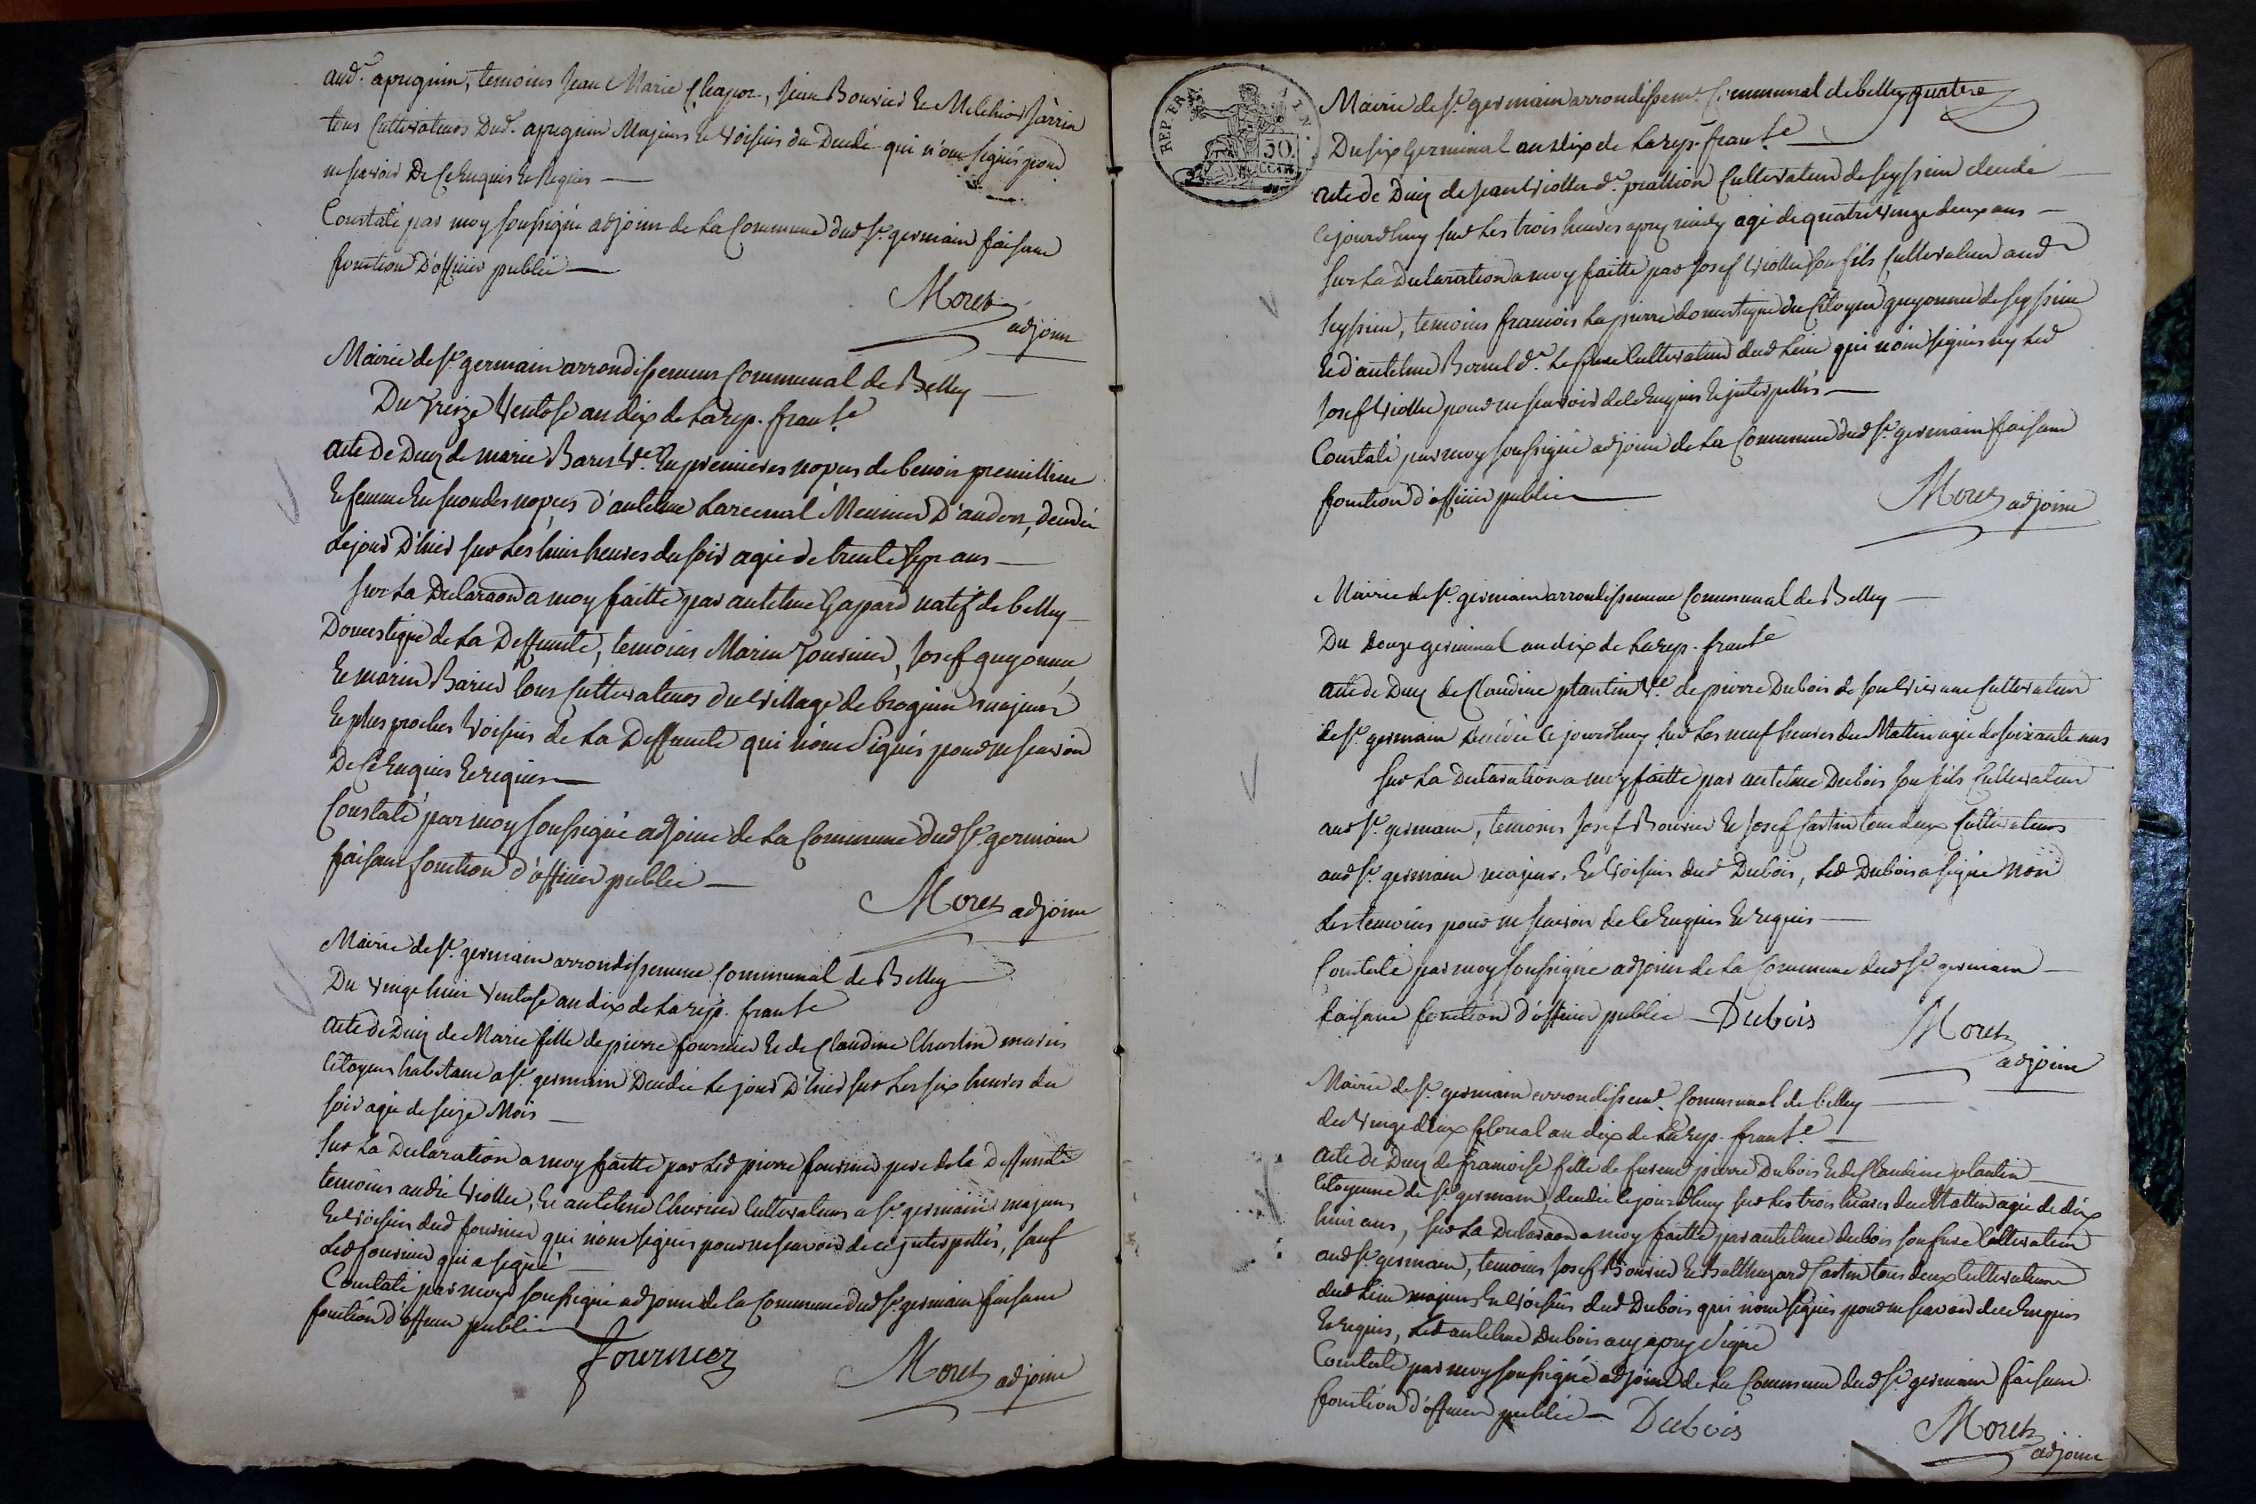 aud. apregnin, temoins Jean Marie Chapoz, Jean Bouvier et Melchior Jarrin
tous Cultivateurs Dud. apregnin Majeurs et voisins du Decedé qui n'ont signés pour
ne scavoir De ce Enquis et Requis —
Constaté par moy soussigné adjoint de la Commune dud St. germain faisant
fonction D'officier public —
Moret
adjoint
Mairie de St. germain arrondissement Communal de Belley —
Du treize Ventose an dix de la rep. franse
acte De Duiz de marie Baret Ve. En premieres nopces de benoit premillieu
Et femme En secondes nopces d'antelme Larcenal Meunier D'andert, decedée
le jour D'hier sur les huit heures du soir agée de trente sept ans —
sur la Declaraon a moy faitte par antelme Gaspard natif de belley
Domestique de la Deffunte, temoins Marin fournier, Josef guyonnet
Et marin Barier tous Cultivateurs du village de brognin majeurs
Et plus proches voisins de la Deffunte qui n'ont signés pour ne scavoir
De ce Enquis Et requis —
Constaté par moy soussigné adjoint de la Commune dud St. germain
faisant fonction d'officier public —
Moret adjoint
Mairie de St. germain arrondissement Communal de Belley —
Du vingt huit Ventose an dix de la rep. franse
acte de Duiz de Marie fille de pierre fournier Et de Claudine mariés
Citoyens habitant a St. germain Decedée le jour D'hier sur les six heures du
soir agée de seize Mois —
sur la Declaration a moy faitte par led pierre fournier pere de la Deffunte
temoins andré viollet, Et antelme Cultivateurs a St. germain majeurs
Et voisins dud fournier qui n'ont signés pour ne scavoir de ce interpellés, sauf
led fournier qui a signé —
Constaté par moy soussigné adjoint de la Commune dud St. germain faisant
fonction d'officier public
fournier
Moret adjoint
REP. FRA.
50
CENT.
Mairie de St. germain arrondissemt. Communal de belley quatre
Du six Germinal an dix de la rep. franse —
acte de Duiz de Jean viollet dt. Cultivateur de seyssieu decedé
cejourdhuy sur les trois heures apres midy agé de quatre vingt deux ans —
sur la Declaration a moy faitte par Josef viollet son fils Cultivateur aud
seyssieu, temoins francois Lapierre domestique du Citoyen guyonnet de seyssieu
Et d'antelme dt. Cultivateur dud Lieu qui n'ont signés ny led
Josef viollet pour ne scavoir de ce Enquis Et interpellés —
Constaté par moy soussigné adjoint de la Commune dud St. germain faisant
fonction d'officier public —
Moret adjoint
Mairie de St. germain arrondissement Communal de Belley —
Du Douze germinal an dix de la rep. franse
acte de Duiz de Claudine plantin Ve. de pierre Dubois de son vivant Cultivateur
de St. germain Decedée ce jourdhuy sur les neuf heures du Mattin agée de soixante ans
sur la Declaration a moy faitte par antelme Dubois son fils Cultivateur
aud St. germain, temoins Josef Bouvier Et Josef Cartin tous deux Cultivateurs
aud St. germain majeurs, Et voisins dud Dubois, led Dubois a signé non
les temoins pour ne scavoir de ce Enquis Et requis —
Constaté par moy soussigné adjoint de la Commune dud St. germain —
faisant fonction d'officier public — Dubois
Moret
adjoint
Mairie de St. germain arrondissemt. Communal de belley —
du vingt deux floreal an dix de la rep. franse. —
acte de Duiz de francoise fille de furent pierre Dubois Et de Claudine plantin
Citoyenne de St. germain, decedée cejourdhuy sur les trois heures du Mattin agée de dix
huit ans, sur la Declaraon a moy faitte par antelme dubois son frere Cultivateur
aud St. germain, temoins Josef Bouvier Et Balthazard Cartin tous deux Cultivateurs
dud Lieu majeurs Et voisins dud Dubois qui n'ont signés pour ne scavoir de ce Enquis
Et requis, led antelme Dubois ayant signé
Constaté par moy soussigné adjoint de la Commune dud St. germain faisant
fonction d'officier public — Dubois
Moret
adjoint